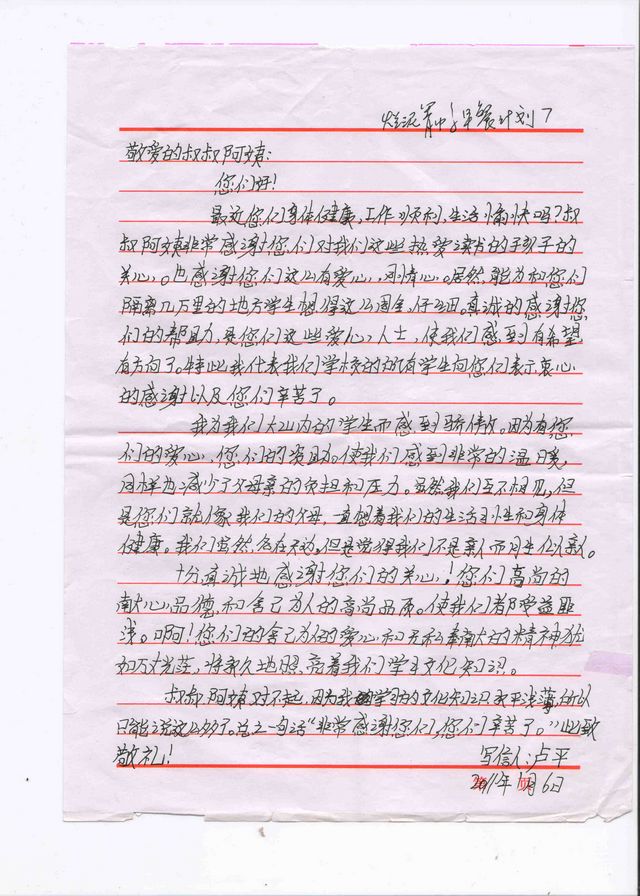 早餐计划7
敬爱的叔叔阿姨:
您们好!
最近您们身体健康,工作顺利,生活愉快吗?叔
叔阿姨非常感谢您们对我们这些热爱读书的孩子的
关心。也感谢您们这么有爱心,同情心。居然能为和您们
隔离几万里的地方学生想得这么周全,仔细。真诚的感谢您
们的帮助,是您们这些爱心人士,使我们感到有希望
有方向了。特此我代表我们学校的所有学生向您们表示衷心
的感谢以及您们辛苦了。
我为我们大山内的学生而感到骄傲。因为有您
们的爱心,您们的资助。使我们感到非常的温暖,
同样也减少了父母亲的负担和压力。虽然我们互不相见,但
是您们就像我们的父母,一直想着我们的生活习性和身体
健康。我们虽然各在天边。但是觉得我们不是亲人而同生似亲人。
十分真诚地感谢您们的关心!您们高尚的
献心品德,和舍己为人的高尚品质。使我们都受益匪
浅。啊!您们的舍己为人的爱心和无私奉献的精神犹
如万丈光茫,将永久地照亮着我们学习文化知识。
叔叔阿姨对不起,因为我学习的文化知识水平浅薄,所以
只能说这么多了。总之一句话“非常感谢您们,您们辛苦了。”此致
敬礼!
写信人:卢平
2011年1月6日